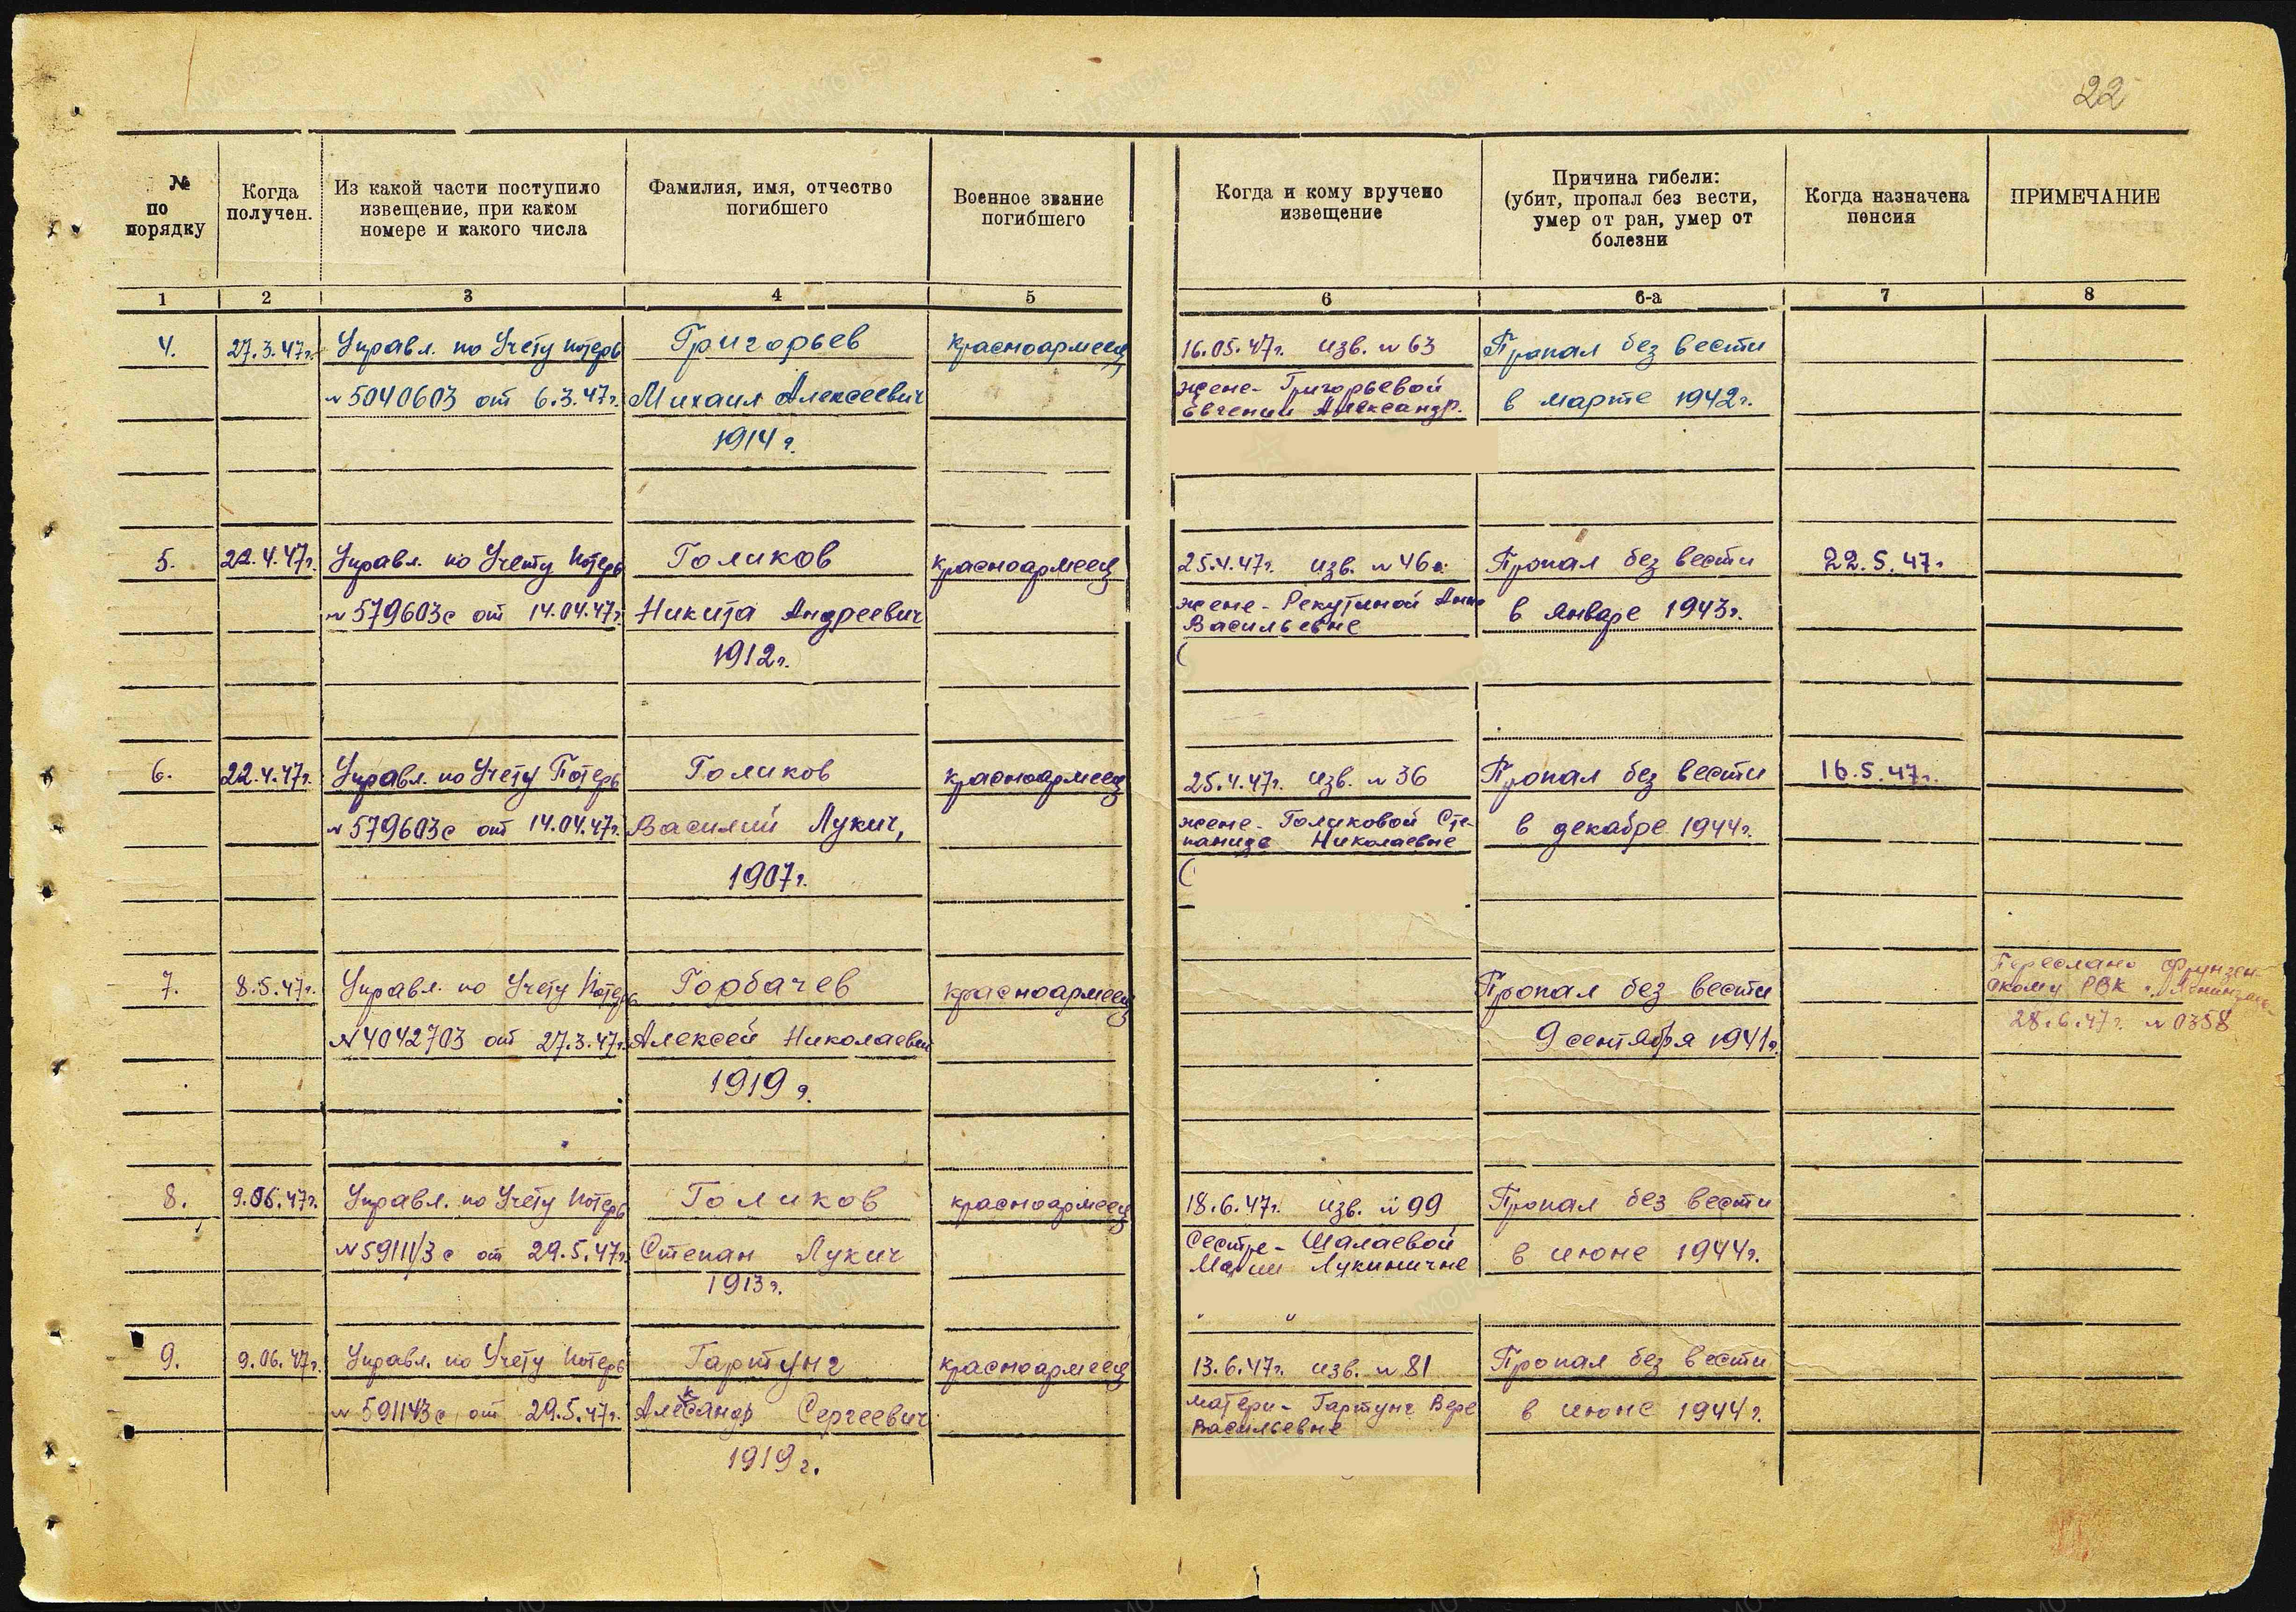 22
№ по порядку
Когда получен.
Из какой части поступило извещение, при каком номере и какого числа
Фамилия, имя, отчество погибшего
Военное звание погибшего
Когда и кому вручено извещение
Причина гибели: (убит, пропал без вести, умер от ран, умер от болезни
Когда назначена пенсия
ПРИМЕЧАНИЕ
1 2 3 4 5 6 6-а 7 8
4. 27.3.47г. Управл. по Учету потерь Григорьев красноармеец 16.05.47г. изв. №63 Пропал без вести
№5040603 от 6.3.47г. Михаил Алексеевич жене - Григорьевой в марте 1942г.
Евгении Александр.
1914 г.
5. 22.4.47г. Управл. по Учету Потерь Голиков красноармеец 25.4.47г. изв. №46 Пропал без вести 22.5.47г
№579603с от 14.04.47г. Никита Андреевич жене - Рекутиной Анне в январе 1943г.
Васильевне
1912г. (
6. 22.4.47г. Управл. по Учету Потерь Голиков красноармеец 25.4.47г. изв. №36 Пропал без вести 16.5.47г.
№579603с от 14.04.47г. Василий Лукич, жене - Голиковой Сте- в декабре 1944г.
паниде Николаевне
1907г. (
7. 8.5.47г. Управл. по Учету Потерь Горбачев красноармеец Пропал без вести Переслано Фрунзен-
скому РВК г.
№4042703 от 27.3.47г. Алексей Николаевич 9 сентября 1941г. 28.6.47г. №0358
1919 г.
8. 9.06.47г. Управл. по Учету Потерь Голиков красноармеец 18.6.47г. изв. №99 Пропал без вести
от 29.5.47г. Степан Лукич Сестре - Шалаевой в июне 1944г.
Марии Лукиничне
1913г.
" "
9. 9.06.47г. Управл. по Учету Потерь Гартунг красноармеец 13.6.47г. изв. №81 Пропал без вести
от 29.5.47г. Александр Сергеевич матери - Гартунг Вере в июне 1944г.
Васильевне
1919г.